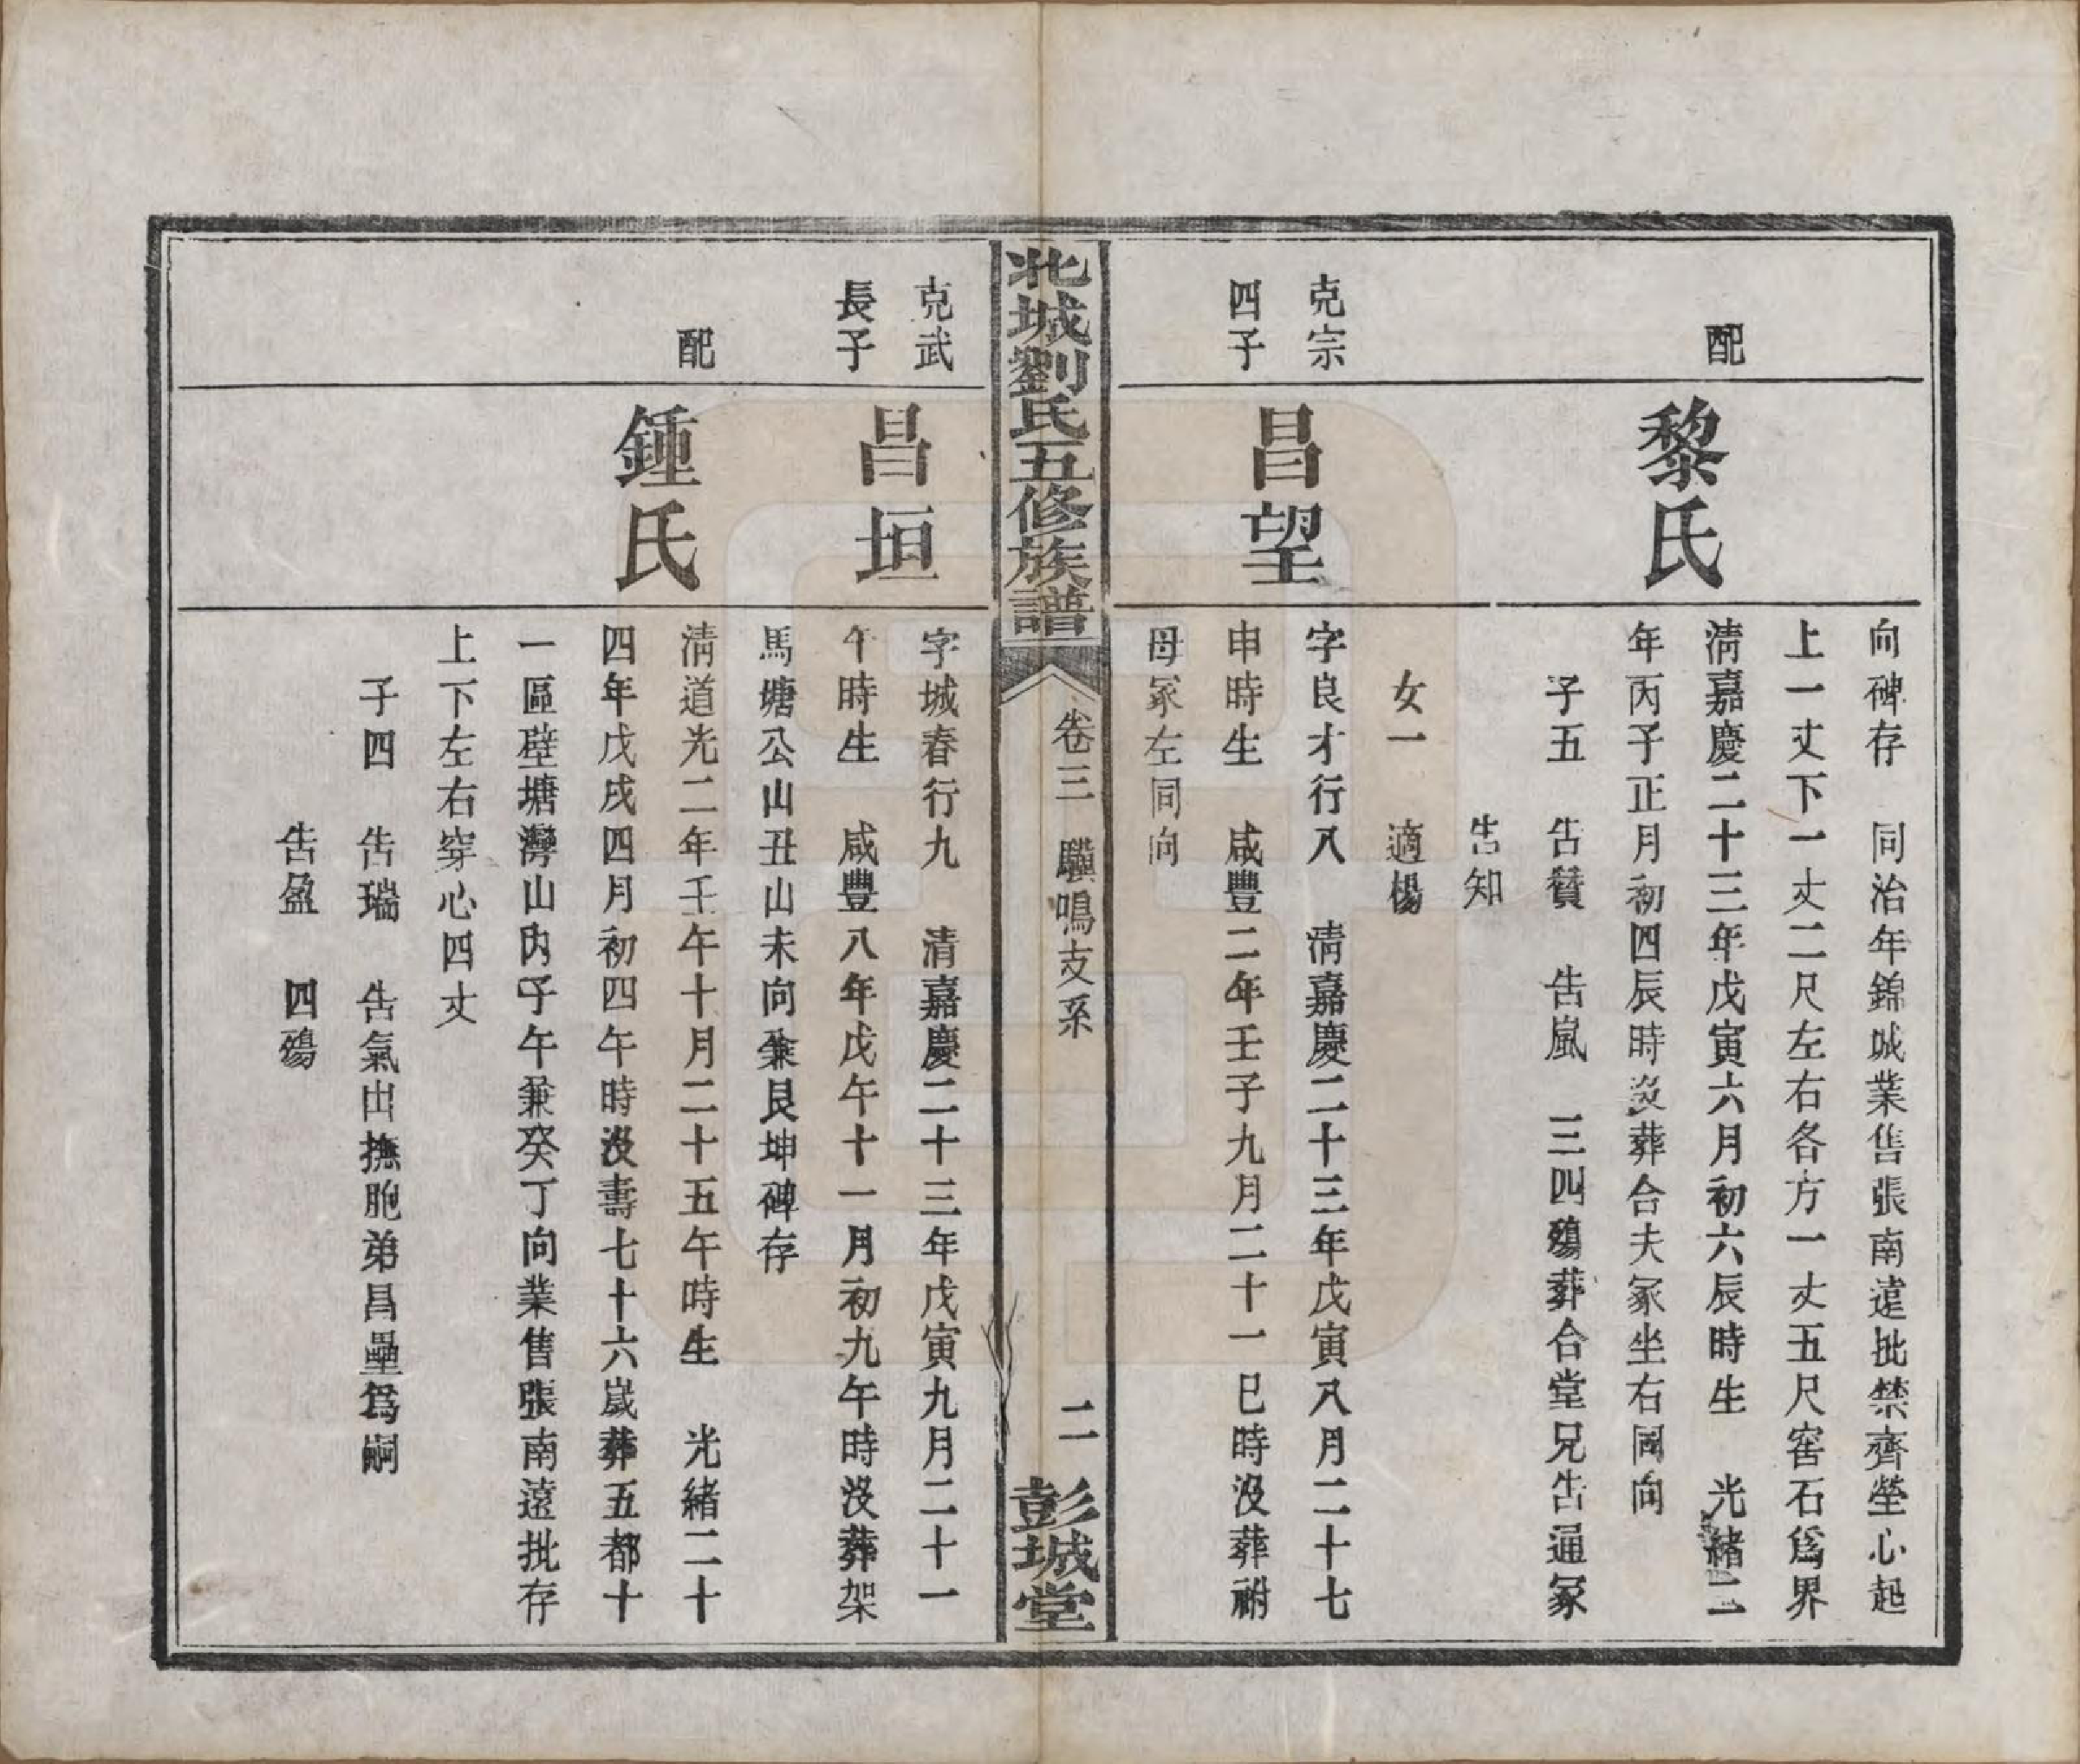 向碑存　同治年錦城業售張南遠批禁齊塋心起
上一丈下一丈二尺左右各方一丈五尺窖石爲界
配
黎氏
淸嘉慶二十三年戊寅六月初六辰時生　光緖二
年丙子正月初四辰時沒葬合夫冢坐右同向
子五　告贊　告嵐　三四殤葬合堂兄告通冢
告知
女一　適楊
克宗
四子
昌望
字良才行八　淸嘉慶二十三年戊寅八月二十七
申時生　咸豐二年壬子九月二十一巳時沒葬祔
母冢左同向
北城劉氏五修族譜
卷三　驥鳴支系
二
彭城堂
克武
長子
昌垣
字城春行九　淸嘉慶二十三年戊寅九月二十一
午時生　咸豐八年戊午十一月初九午時沒葬架
馬塘公山丑山未向兼艮坤碑存
配
鍾氏
淸道光二年壬午十月二十五午時生　光緖二十
四年戊戌四月初四午時沒壽七十六嵗葬五都十
一區壁塘灣山內子午兼癸丁向業售張南遠批存
上下左右穿心四丈
子四　告瑞　告氣出撫胞弟昌壘爲嗣
告盈　四殤